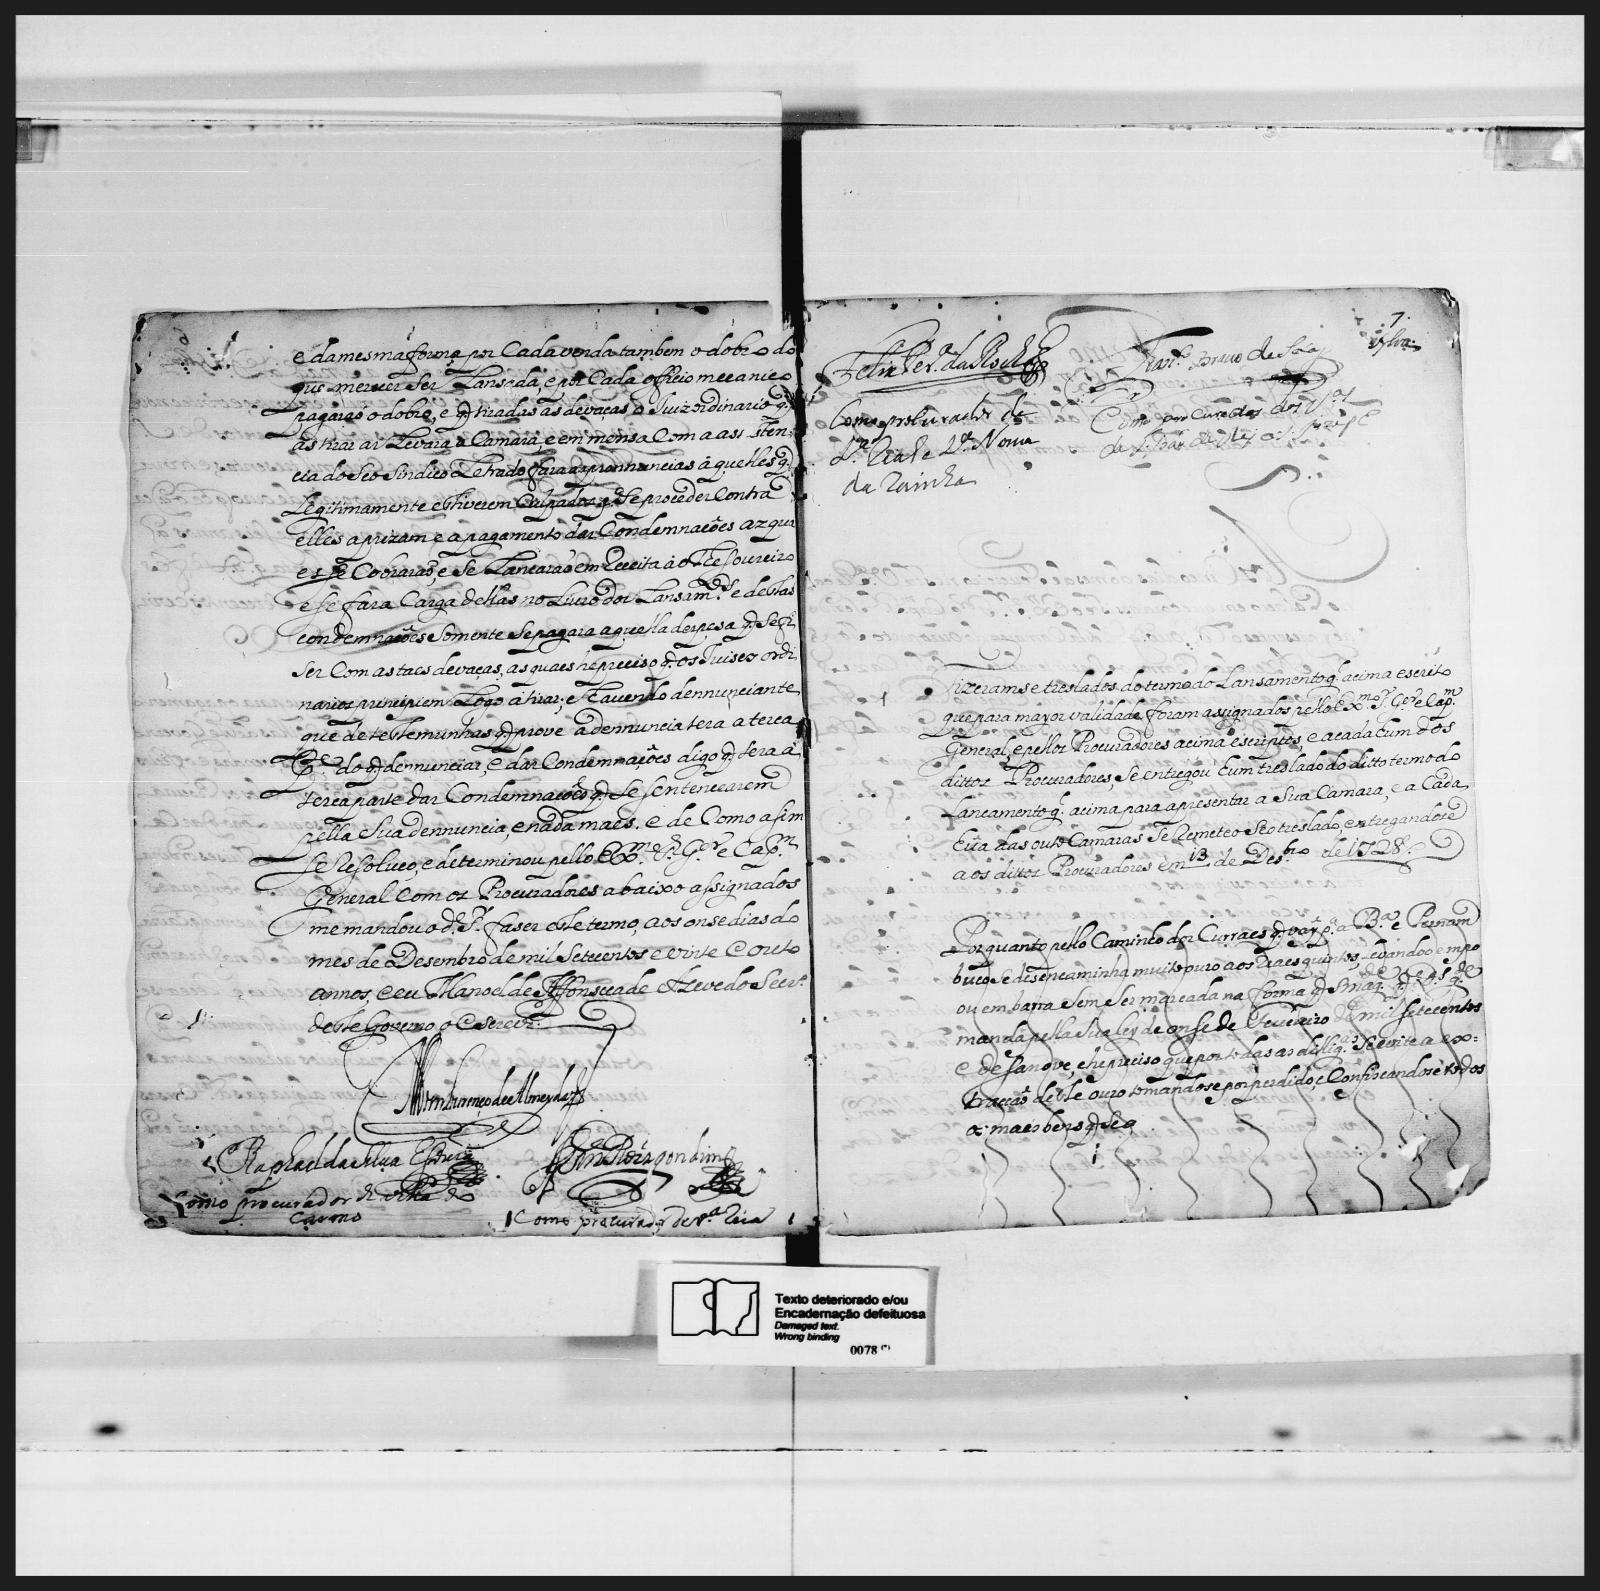 e da mesma forma por Cada venda tambem o dobro do
que merecer ser Lansada, e por Cada officio mecanico
pagarão o dobro, e q̃ tiradas as devaças o Juiz ordinario q̃
as tirar as Levará a Camara, e em mensa Com a assisten
cia do Seo Sindico Letrado fara as pronuncias áquelles q̃
Legitimamente estiverem Culpados q̃ Se proceder Contra
elles a prizam e a pagamento das Condemnações as quaes
Se Cobrarão, e Se Lancarão em Receita ao Thesoureiro
e se fara Carga dellas no Livro dos Lansam.tos e destas
condemnações Somente Se pagara aquella despesa q̃ Se fi
ser Com as taes devaças, as quaes he preciso q̃ os Juises ordi
narios principiem Logo a tirar, e havendo dennunciante
que de testemunhas q̃ prove a dennuncia tera a terca
p.te do q̃ dennunciar, e das Condemnações digo q̃ tera a
terca parte das Condemnações q̃ Se sentencearem
pella Sua dennuncia, e nada maes. e de Como asim
se Resolveo, e determinou pello Ex.mo S.r G.or e Cap.m
General Com os Procuradores abaixo assignados
me mandou o d.o S.r faser este termo, aos onse dias do
mes de Desembro de mil Setecentos e vinte e outo
annos, e eu Manoel de Affonseca de Azevedo Secr.o
deste Governo o escrevi.
Dom Lourenço de Almeyda
Raphael da Silva e Souza
Como procurador da villa do
Carmo
Como procurador de V.a Rica
7
Como procurador da
V.a Real e V.a Nova
da Rainha
Fran.co Bravo de
Como procurador das V.as
de S. João de
Fizeramse treslados do termo do Lansamento q̃ acima escrito
que para mayor validade foram assignados pello Ex.mo S.r G.or e Cap.m
General, e pellos Procuradores acima escriptos, e a cada hum dos
dittos Procuradores, Se entregou hum treslado do ditto termo do
Lancamento q̃ acima para apresentar a Sua Camara, e a Cada
hũa das outo Camaras Se Remeteo Seo treslado, entregandose
aos dittos Procuradores em 13 de Des.bro de 1728.
Por quanto pello Caminho dos Curraes q̃ vay p.a a B.a e Pernam
buco Se desencaminha muito ouro aos Reaes quintos, Levando em po
ou em barra sem Ser marcada na forma q̃ S. Mag.de q̃ D.s g.de
manda pella Sua Ley de onse de Fevereiro de mil Setecentos
e desanove, e he preciso que por todas as dillig.as Se evite a ex=
tracção deste ouro tomandose por perdido, e Confiscandose todos
os maes bens q̃ Se a
Texto deteriorado e/ou
Encadernação defeituosa
Damaged text.
Wrong binding
0078 (*)